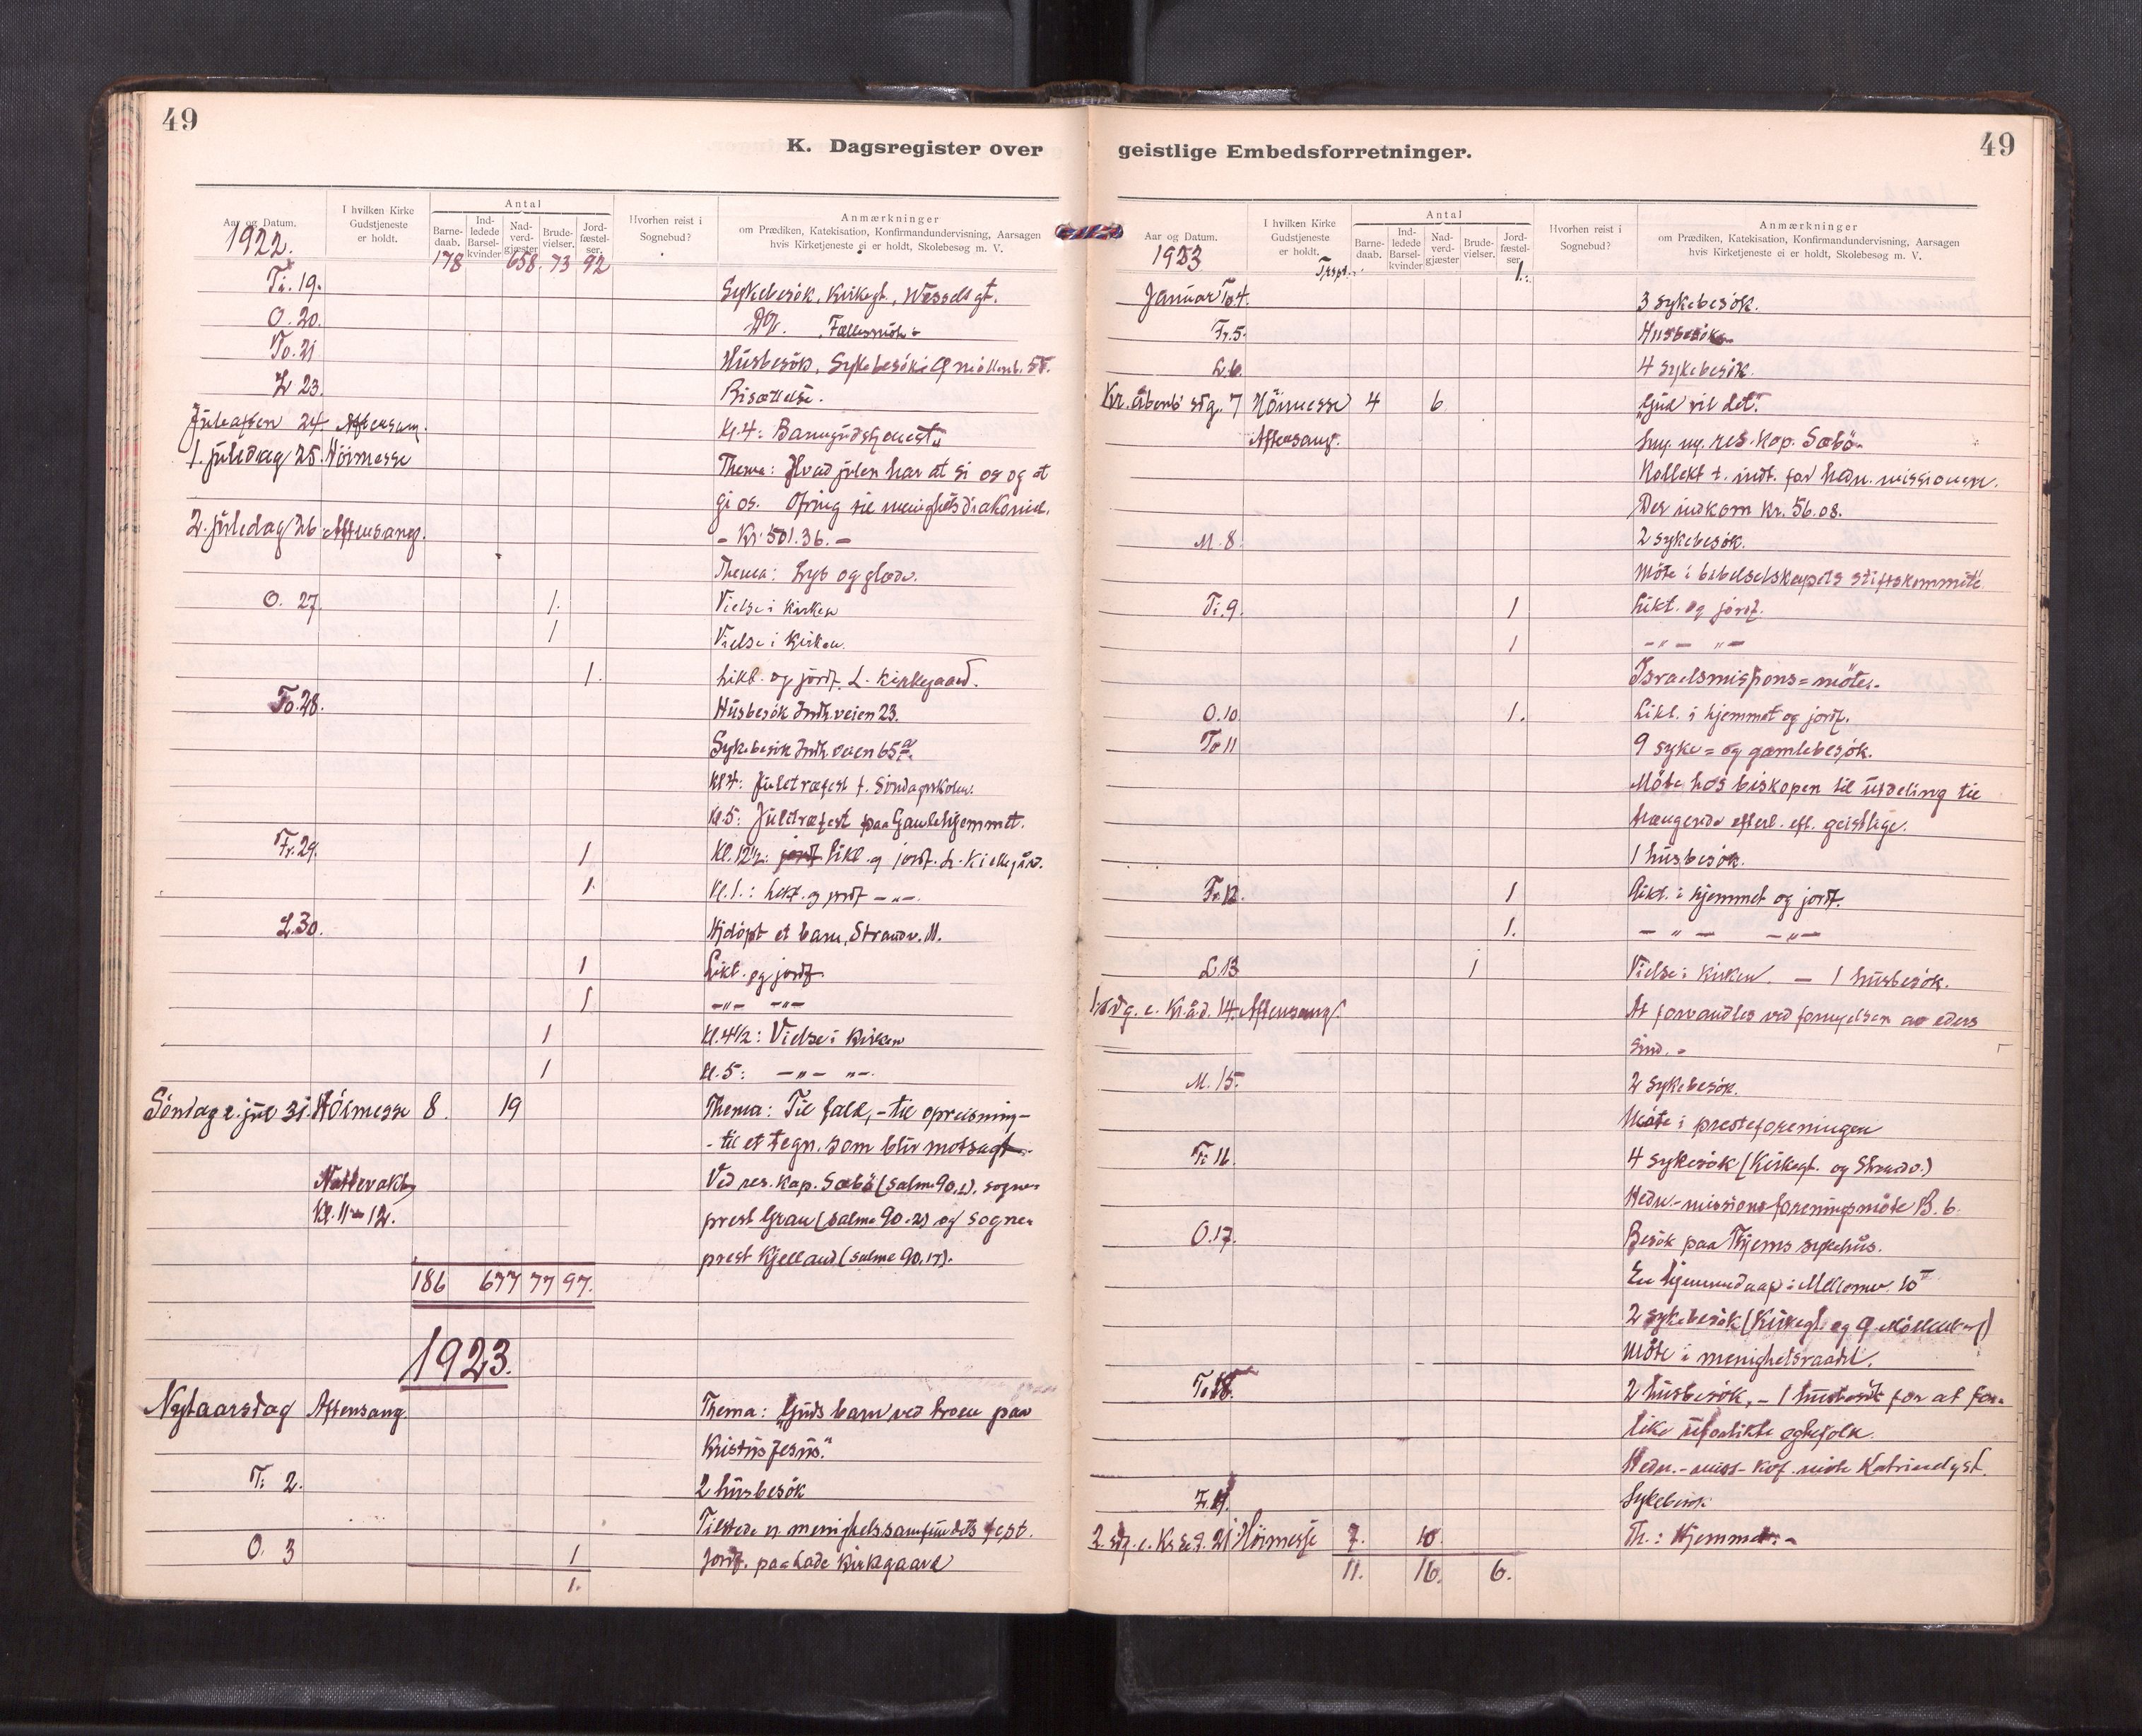 49
K. Dagsregister over
Aar og Datum. I hvilken Kirke Gudstjeneste er holdt. Antal Barnedaab. Indledede Barselkvinder Nadverdgjæster Brudevielser. Jordfæstelser. Hvorhen reist i Sognebud? Anmærkninger om Prædiken, Katekisation, Konfirmandundervisning, Aarsagen hvis Kirketjeneste ei er holdt, Skolebesøg m. V.
1922. 178 658 73 92
Ti. 19. Sykebesök, Kirkegt., Wesselsgt.
O. 20. Fællesmöte
To. 21 Husbesök, Sykebesök i
L 23. Bisættelse.
Juleaften 24. Aftensang. Kl. 4: Barnegudstjeneste
1. juledag 25. Höimesse Thema: Hvad julen har at si os og at
gi os. Ofring til menighetsdiakoniet.
2. juledag 26. Aftensang. - Kr. 501.36. -
Thema: Lys og glæde.
O. 27. 1. Vielse i kirken
1 Vielse i kirken.
1. Likt. og jordf. L. kirkegaard.
To. 28. Husbesök Indh.veien 23.
Sykebesök Indh.veien 65a.
Kl 4: Juletræfest f. Söndagsskolen.
Kl. 5: Juletræfest paa Gamlehjemmet.
Fr. 29. 1 Kl. 12½: jordf Likt. og jordf. L. Kirkegård.
1. Kl. 1.: Likt. og jordf - " -
L. 30. Hjdöpt et barn, Strandv. 11.
1 Likt. og jordf.
1. -"- -"-
1 Kl. 4½: Vielse i kirken
1 Kl. 5: -"- "-
Söndag e. jul 31. Höimesse 8. 19 Thema: Til fald, - til opreisning -
- til et tegn, som blir motsagt -
Nattevakt Ved res. kap. Sæbö (salme 90.1), sogne-
Kl. 11-12. prest Grau (salme 90.2) og sogne-
prest Kjelland (salme 90.17).
186 677 77 97.
1923.
Nytaarsdag Aftensang. Thema: "Guds barn ved troen paa
Kristus Jesus."
Ti 2. 2 husbesök
Tilstede v. menighetssamfundets fest.
O. 3 1 Jordf. paa Lade Kirkegaard
1.
49
geistlige Embedsforretninger.
Aar og Datum. I hvilken Kirke Gudstjeneste er holdt. Antal Barnedaab. Indledede Barselkvinder Nadverdgjæster Brudevielser. Jordfæstelser. Hvorhen reist i Sognebud? Anmærkninger om Prædiken, Katekisation, Konfirmandundervisning, Aarsagen hvis Kirketjeneste ei er holdt, Skolebesøg m. V.
1923 Trspt. 1.
Januar To 4. 3 sykebesök.
Fr. 5. Husbesök
L. 6. 4 sykebesök.
Kr. åbenb. sdg. 7 Höimesse 4 6 "Gud vil det."
Aftensang. res. kap. Sæbö.
Kollekt t. indt. for hedn. missionen.
Der indkom Kr. 56.08.
M. 8. 2 sykebesök.
Möte i bibelselskapets stiftskommité
Ti. 9. 1 Likt. og jordf.
1 -"- "-
Israelsmissions=möte.
O. 10. 1. Likt. i hjemmet og jordf.
To 11 9 syke= og gamlebesök.
Möte hos biskopen til utdeling til
trængende efterl. eft. geistlige.
1 husbesök.
Fr. 12. 1 Likt. i hjemmet og jordf.
1. - " - - " -
L. 13 1 Vielse i kirken. - 1 husbesök.
1. sdg. e. Kr. å. d. 14. Aftensang. At forvandles ved fornyelsen av eders
sind. -
M. 15. 2 sykebesök.
Möte i presteforeningen
Ti 16. 4 sykesök (Kirkegt. og Strandv.)
Hedn.-missionsforeningsmöte B. 6.
O. 17. Besök paa Thjems sykehus.
En hjemmedaap i Mellomv. 10
2 sykebesök (Kirkegt. og
Möte i menighetsraadet.
To 18. 2 husbesök, - 1 husbesök for at for-
like uforlikte egtefolk.
Sykebesök
2. sdg. e. 21. Höimesse 7. 10. Th.: Hjemmet. -
11. 16. 6.